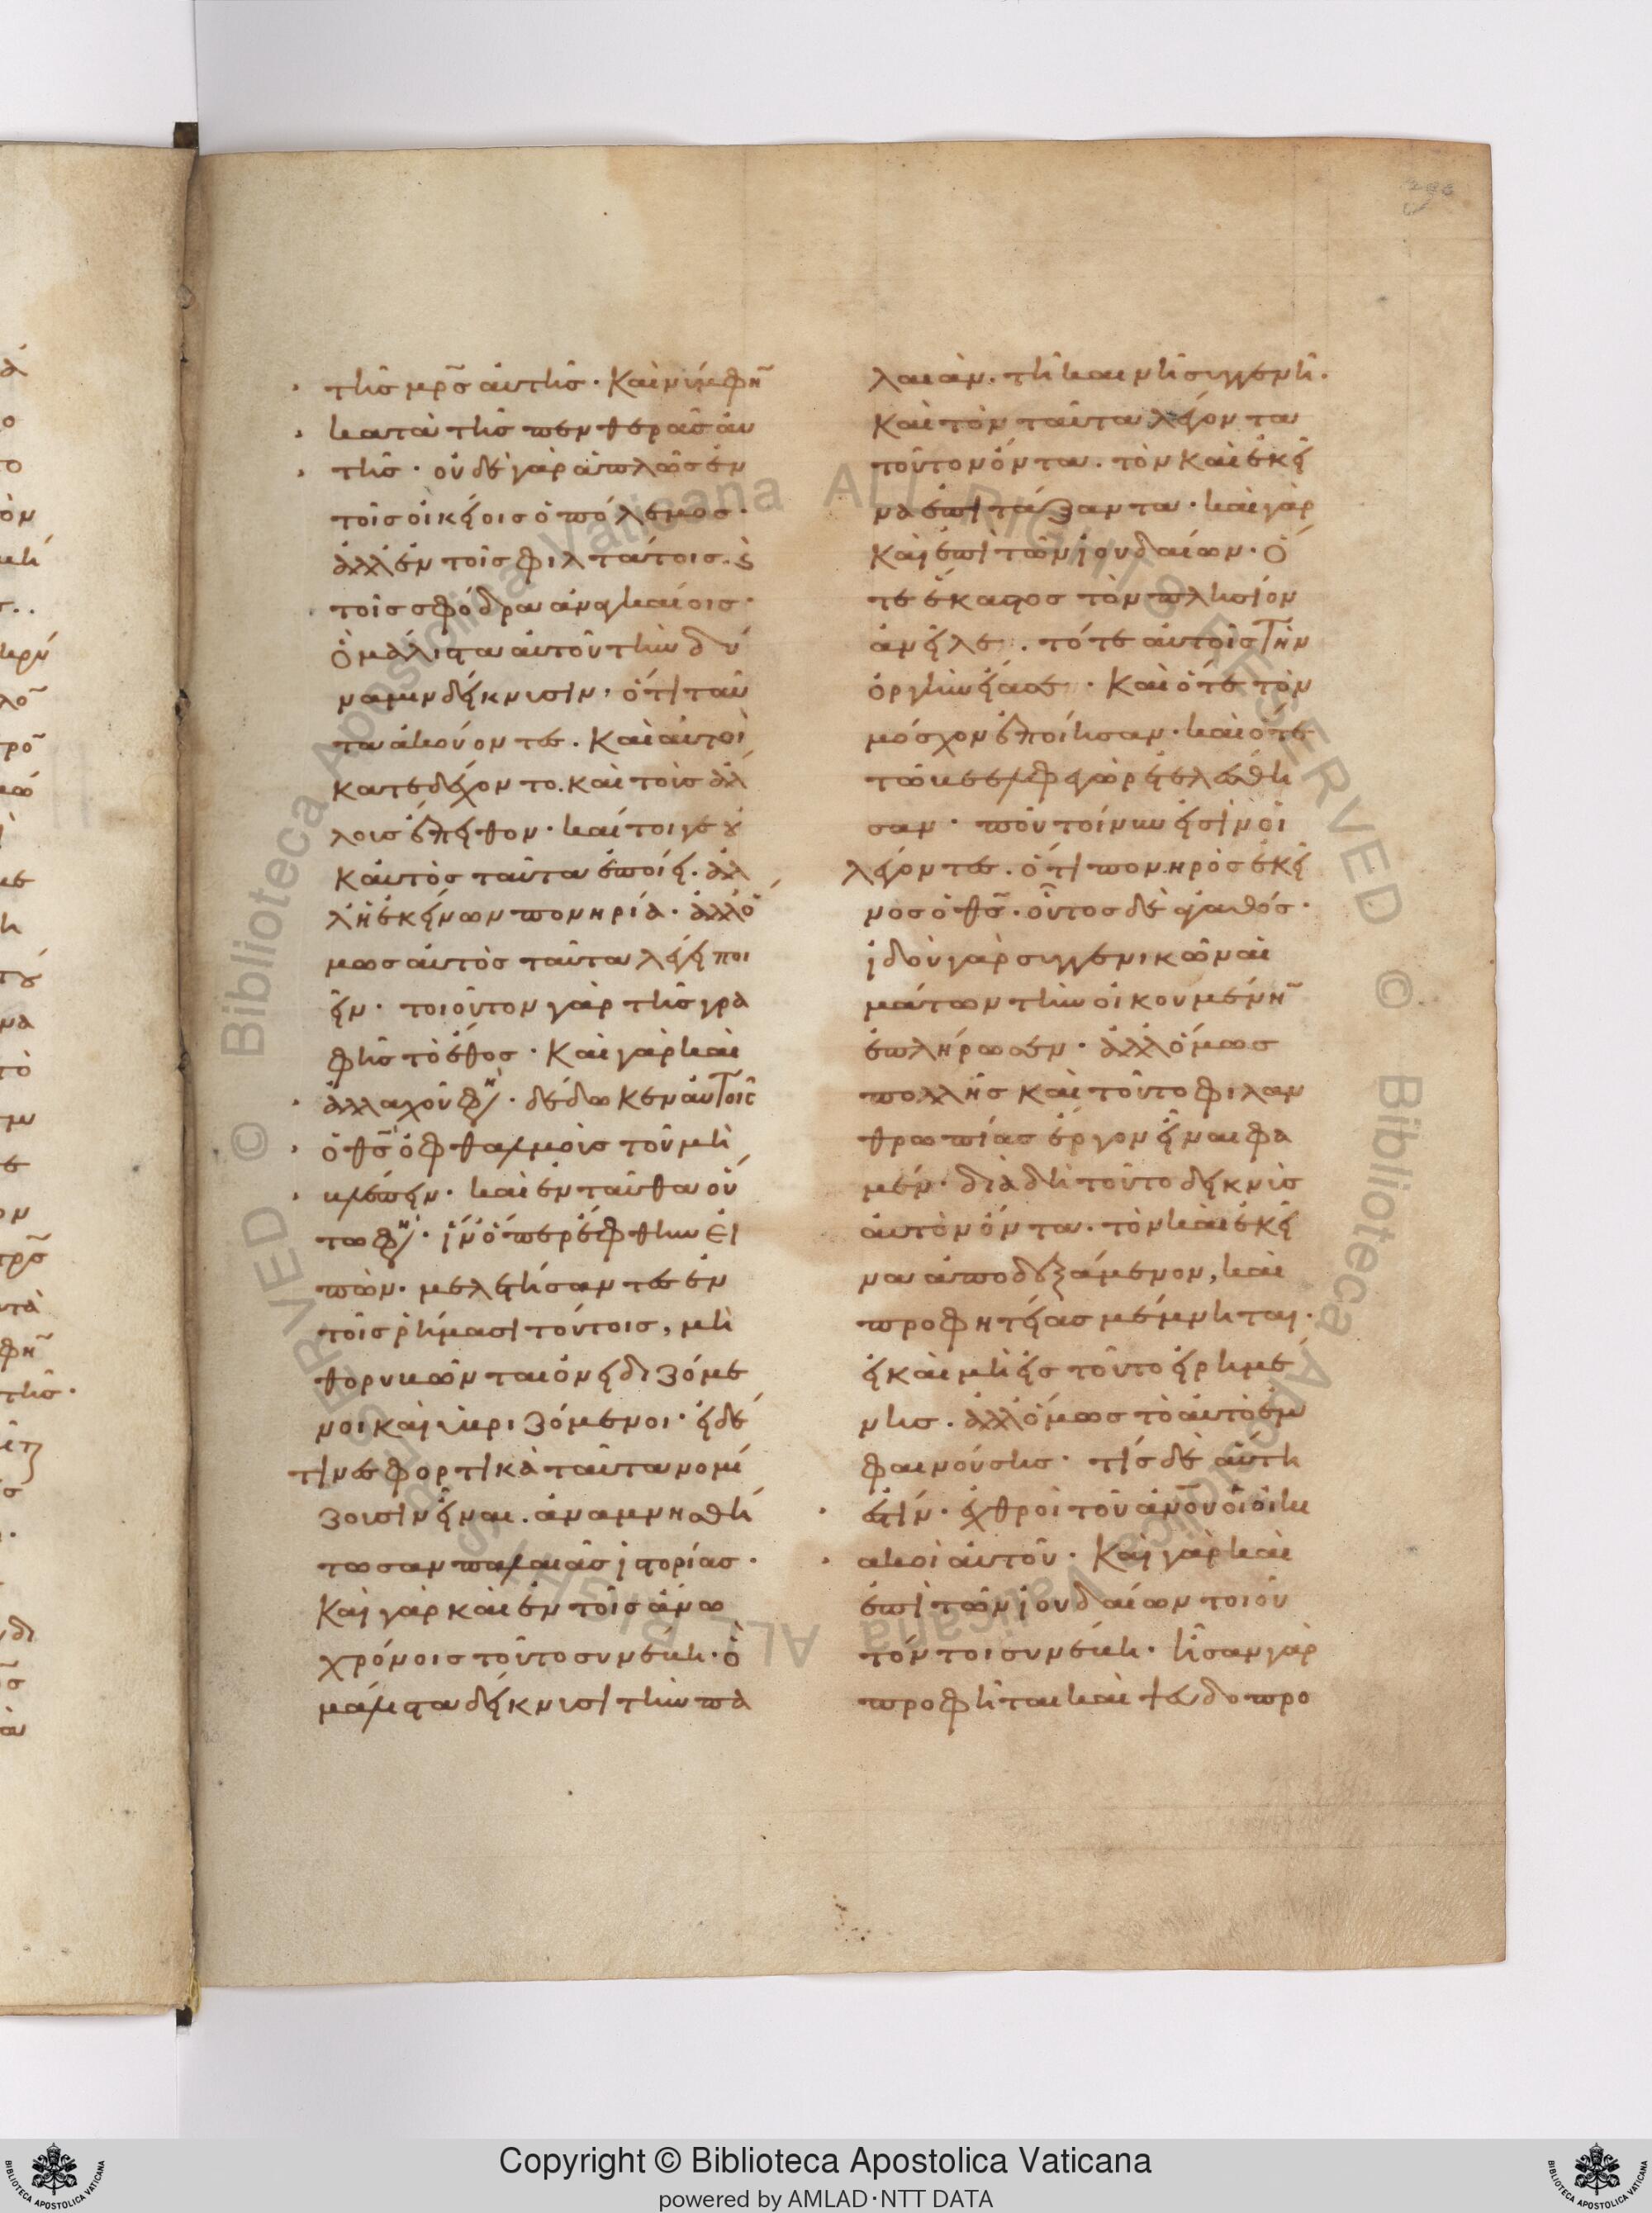 τῆς μρ̅ς ἀυτῆς· Και νύμφη̅
κατὰ τῆς πενθερᾶς ἀυ
τῆς· οὐδὲ γὰρ ἁπλῶς ἐν
τοῖς οἰκείοις ὁ πόλεμος·
ἀλλ ἐν τοῖς φιλτάτοις. ϗ
τοῖς σφόδρα ἀναγκαίοις·
Ὃ μάλιστα ἀυτοῦ τὴν δύ
ναμιν δείκνυσιν· ὅτι ταῦ
τα ἀκούοντες. Και ἀυτοὶ
κατεδέχοντο. καὶ τοὺς ἀλ
λους ἔπειθον· καίτοιγε ȣ
κ ἀυτὸς ταῦτα ἐποίει. ἀλ
λ ἡ ἐκείνων πονηρία· ἀλλ ὅ
μως ἀυτὸς ταῦτα λέγει ποι
εῖν· τοιοῦτον γὰρ τῆς γρα
φῆς τὸ ἔθος· Και γὰρ καὶ
ἀλλαχοῦ φη· δέδωκεν ἀυτοῖς
ὁ θς̅ ὀφθαλμοὺς τοῦ μὴ
βλέπειν· καὶ ἐνταῦθα οὕ
τω φη· ἵν ὅπερ ἔφθην εἰ
πὼν· μελετήσαντες ἐν
τοῖς ῥήμασι τούτοις, μὴ
θορυβῶνται ὀνειδιζόμε
νοι και ὑβριζόμενοι· εἰ δέ
τινες φορτικὰ ταῦτα νομί
ζουσιν εἶναι. ἀναμνησθή
τωσαν παλαιᾶς ἱστορίας·
Και γὰρ καὶ ἐν τοῖς ἄνω
χρόνοις τοῦτο συνέβη· ὃ
μάλιστα δείκνυσι τὴν πα
λαιὰν. τῆ καινῆ συγγενῆ·
Και τὸν ταῦτα λέγοντα
τοῦτον ὄντα. τὸν καὶ ἐκεῖ
να ἐπιτάξαντα· καὶ γὰρ
Και ἐπὶ τῶν ἰουδαίων· ὅ
τε ἕκαστος τὸν πλησίον
ἀνεῖλε. τότε ἀυτοῖς τὴν
ὀργὴν εἴασε· Και ὅτε τὸν
μόσχον ἐποίησαν· καὶ ὅτε
τῶ βεελφεγὼρ ἐτελέσθη
σαν· ποῦ τοίνυν εἰσὶν οἱ
λέγοντες. ὅτι πονηρὸς ἐκεῖ
νος ὁ θς̅· οὗτος δὲ ἀγαθός·
ἰδοὺ γὰρ συγγενικῶν αἱ
μάτων τὴν οἰκουμένη̅
ἐπλήρωσεν· ἀλλ ὅμως
πολλῆς καὶ τοῦτο φιλαν
θρωπίας ἔργον εἶναι φα
μέν· διὰ δὴ τοῦτο δεικνὺς
ἀυτὸν ὄντα. τὸν καὶ ἐκεῖ
να ἀποδεξάμενον, καὶ
προφητείας μέμνηται·
εἰ καὶ μὴ εἰς τοῦτο εἰρημέ
νης. ἀλλ ὅμως τὸ ἀυτὸ ἐμ
φαινούσης· τίς δὲ ἀύτη
ἐστίν· ἐχθροὶ τοῦ ἀν̅ου οἱ οἰκι
ακοὶ ἀυτοῦ· Και γὰρ καὶ
ἐπὶ τῶν ἰουδαίων τοιοῦ
τόν τοι συνέβη· ἦσαν γὰρ
προφῆται καὶ ψευδοπρο
Copyright © Biblioteca Apostolica Vaticana
powered by AMLAD·NTT DATA